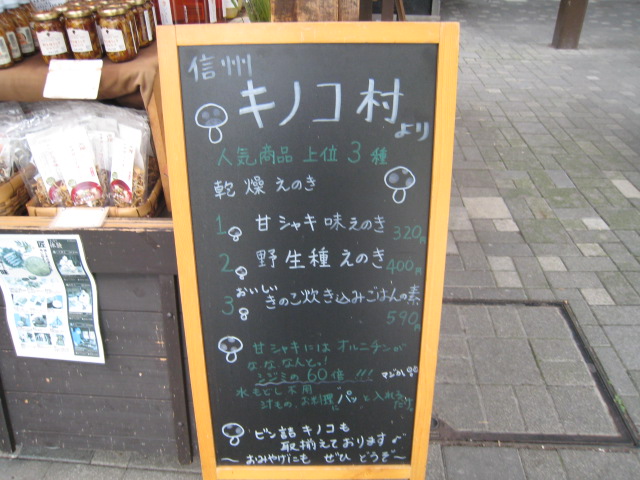 信州
キノコ村
より
人気商品 上位 3 種
乾燥えのき
1 甘シャキ味えのき 320円
2 野生種えのき 400円
3 おいしい
きのこ炊き込みごはんの素
590円
甘シャキには オルニチンが
な、な、なんと!
シジミの 60倍 !!!
水もどし不用
汁もの お料理に パッと入れるだけ
ビン詰キノコも
取揃えております♪
〜おみやげにも ぜひ どうぞ〜